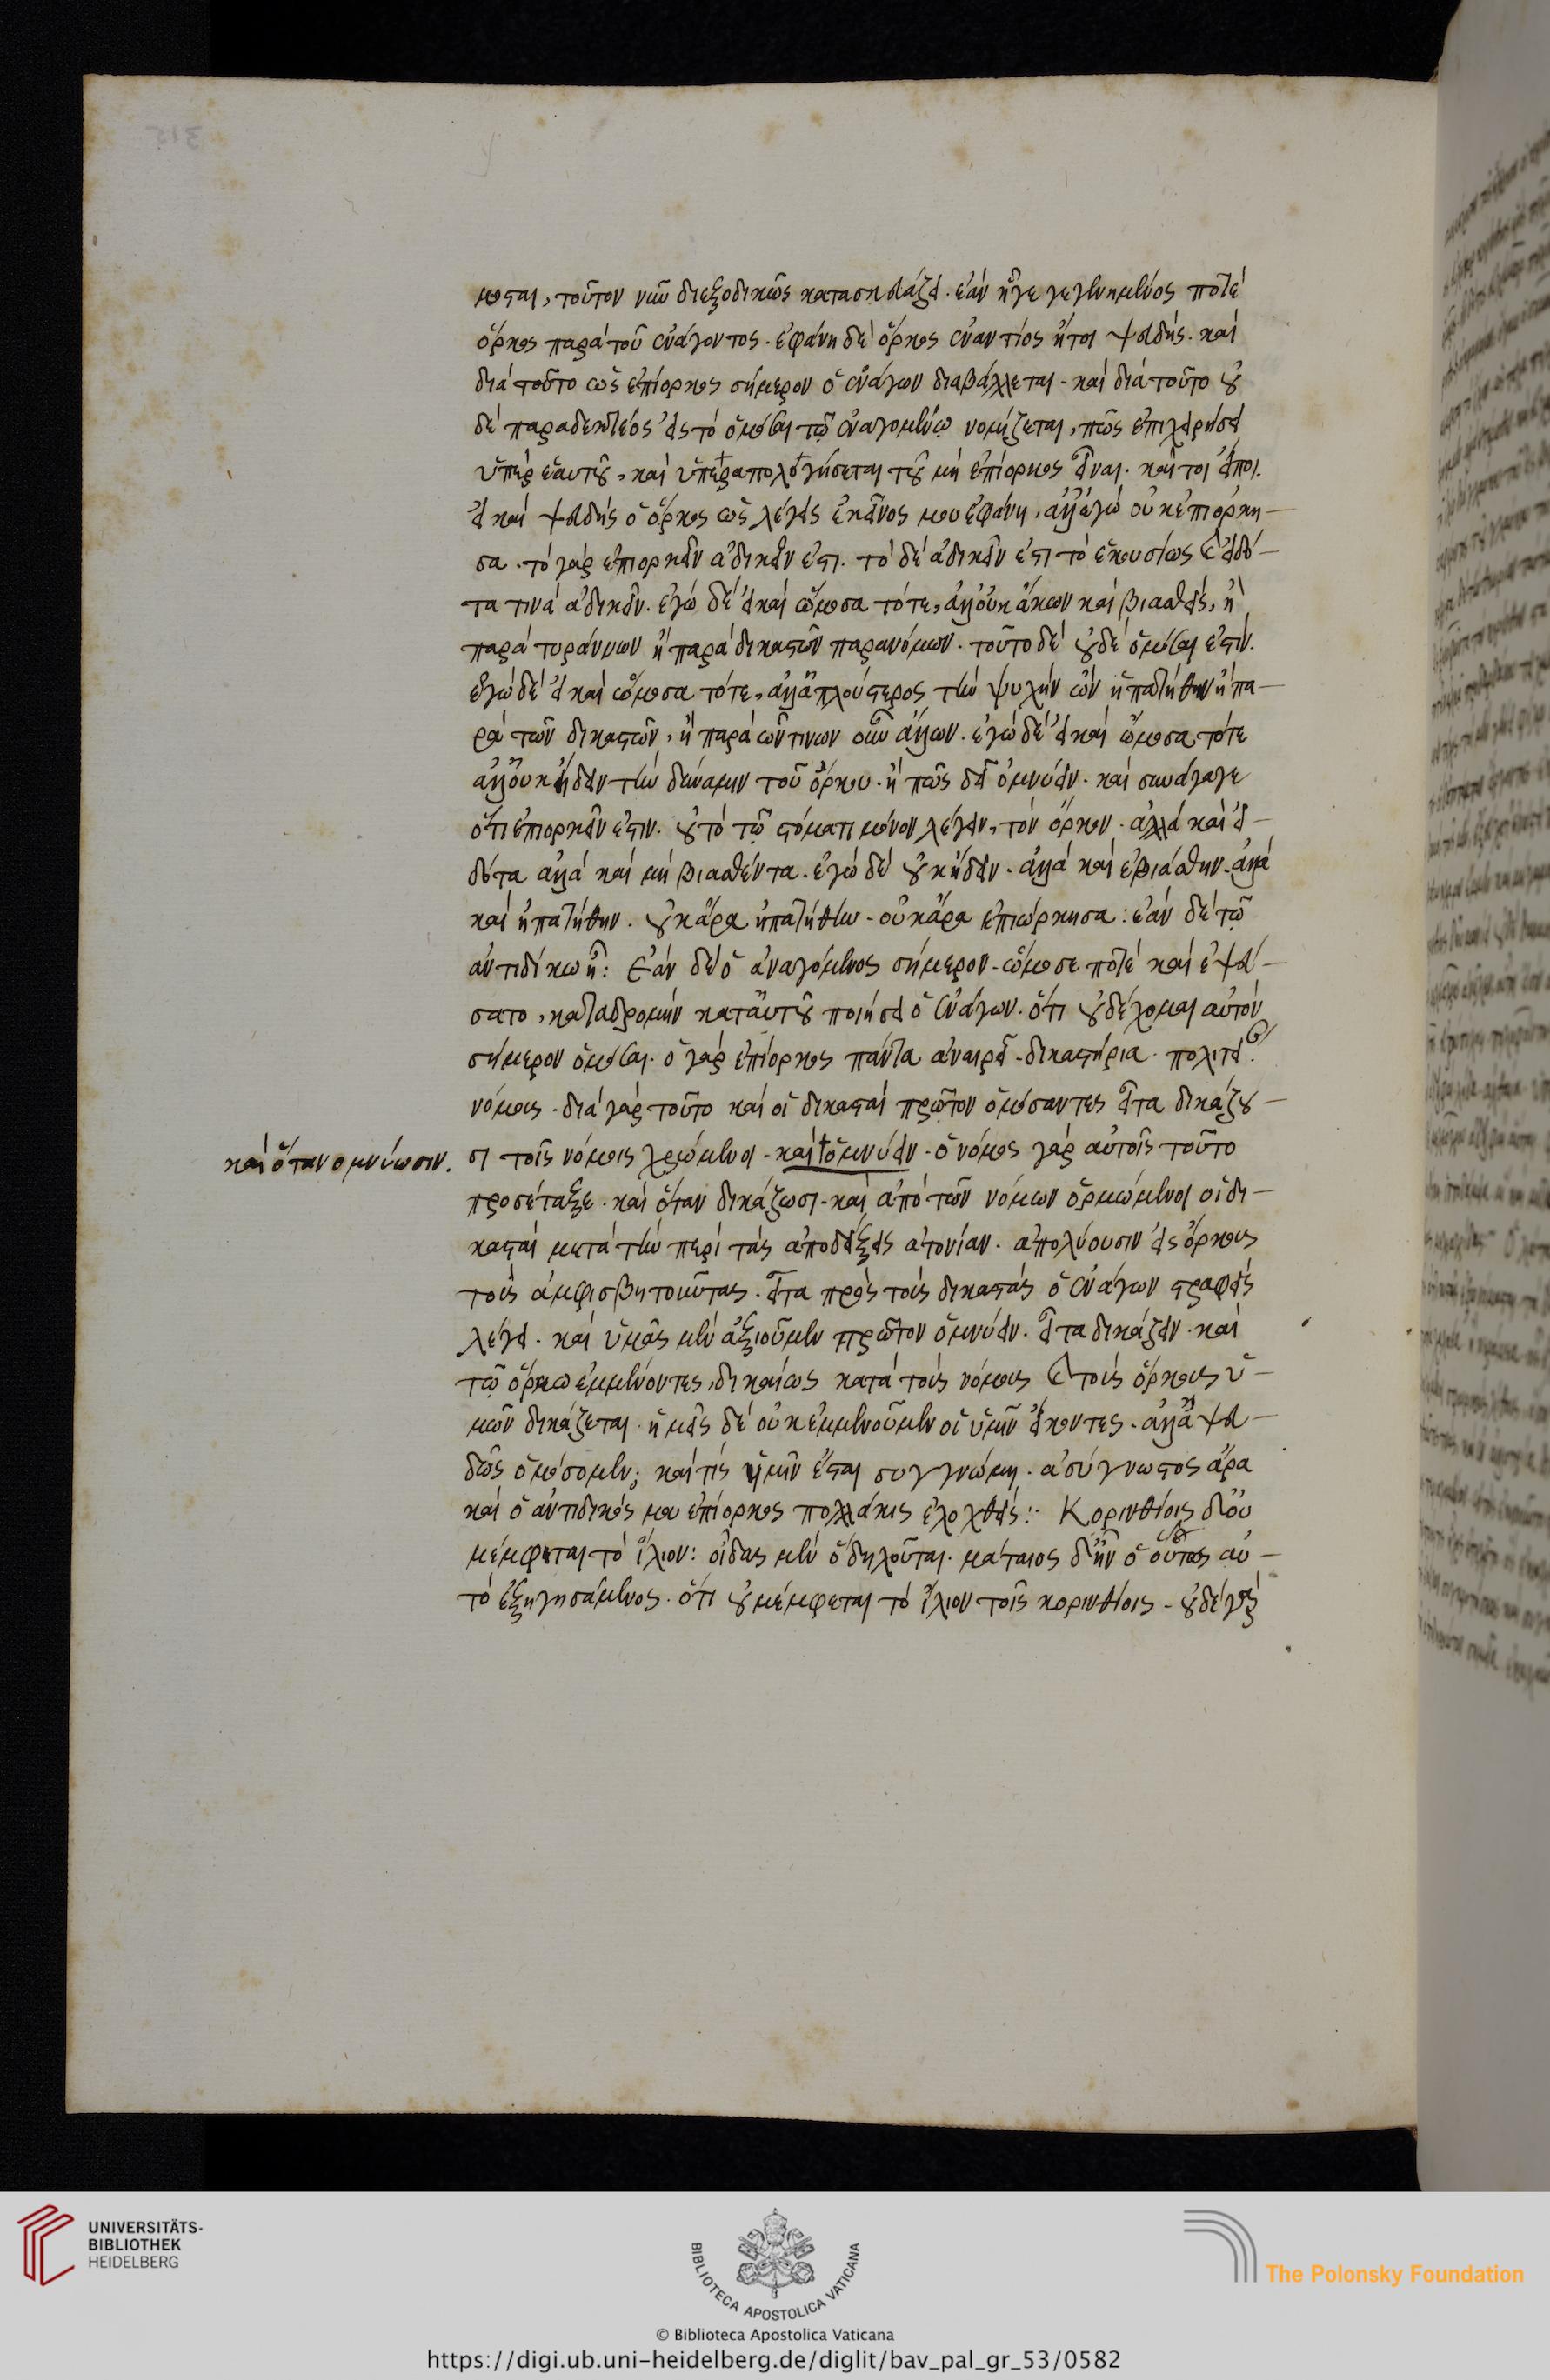 μοσται, τοῦτον νῦν διεξοδικῶς κατασκευάζει. ἐὰν ἦ γε γεγενημένος ποτὲ
ὅρκος παρὰ τοῦ ἐνάγοντος. ἐφάνη δὲ ὅρκος ἐναντίος ἤτοι ψευδής. καὶ
διὰ τοῦτο ὡς ἐπίορκος σήμερον ὁ ἐνάγων διαβάλλεται. καὶ διὰ τοῦτο οὐ
δὲ παραδεκτέος εἰς τὸ ὀμόσαι τῷ ἐναγομένῳ νομίζεται, πῶς ἐπιχειρήσει
ὑπὲρ ἑαυτοῦ, καὶ ὑπεραπολογήσεται τοῦ μὴ ἐπίορκος εἶναι. καίτοι εἴποι.
εἰ καὶ ψευδὴς ὁ ὅρκος ὡς λέγεις ἐκεῖνος μου ἐφάνη, ἀλλ' ἐγὼ οὐκ ἐπιόρκη-
σα. τὸ γὰρ ἐπιορκεῖν ἀδικεῖν ἐστι. τὸ δὲ ἀδικεῖν ἐστι τὸ ἑκουσίως καὶ εἰδό-
τα τινὰ ἀδικεῖν. ἐγὼ δὲ εἰ καὶ ὤμοσα τότε, ἀλλ' οὐκ ἄκων καὶ βιασθείς, ἢ
παρὰ τυράννων ἢ παρὰ δικαστῶν παρανόμων. τοῦτο δὲ οὐδὲ ὀμόσαι ἐστίν.
ἐγὼ δὲ εἰ καὶ ὤμοσα τότε, ἀλλ' ἁπλούστερος τὴν ψυχὴν ὢν ἠπατήθην ἢ πα-
ρὰ τῶν δικαστῶν, ἢ παρὰ ὧν τινων οὖν ἄλλων. ἐγὼ δὲ εἰ καὶ ὤμοσα τότε
ἀλλ' οὐκ ᾔδειν τὴν δύναμιν τοῦ ὅρκου. ἢ πῶς δεῖ ὀμνύειν. καὶ συνάγαγε
ὅτι ἐπιορκεῖν ἐστιν. οὐ τὸ τῷ στόματι μόνον λέγειν, τὸν ὅρκον. ἀλλὰ καὶ εἰ-
δότα ἀλλὰ καὶ μὴ βιασθέντα. ἐγὼ δὲ οὐκ ᾔδειν. ἀλλὰ καὶ ἐβιάσθην. ἀλλὰ
καὶ ἠπατήθην. οὐκ ἄρα ἠπατήθην. οὐκ ἄρα ἐπιώρκησα: ἐὰν δὲ τῷ
ἀντιδίκῳ ᾖ: Ἐὰν δὲ ὁ ἀναγόμενος σήμερον. ὤμοσε ποτὲ καὶ ἐψεύ-
σατο, καταδρομὴν κατ' αὐτοῦ ποιήσει ὁ ἐνάγων. ὅτι οὐ δέχομαι αὐτὸν
σήμερον ὀμόσαι. ὁ γὰρ ἐπίορκος πάντα ἀναιρεῖ. δικαστήρια. πολιτεί
νόμοις. διὰ γὰρ τοῦτο καὶ οἱ δικασταὶ πρῶτον ὀμόσαντες εἶτα δικάζου-
καὶ ὅταν ομνύωσιν. σι τοῖς νόμοις χρώμενοι. καὶ τὸ ὀμνύειν. ὁ νόμος γὰρ αὐτοῖς τοῦτο
προσέταξε. καὶ ὅταν δικάζωσι. καὶ ἀπὸ τῶν νόμων ὁρμώμενοι οἱ δι-
κασταὶ μετὰ τὴν περὶ τὰς ἀποδείξεις ἀτονίαν. ἀπολύουσιν εἰς ὅρκους
τοὺς ἀμφισβητοῦντας. εἶτα πρὸς τοὺς δικαστὰς ὁ ἐνάγων στραφεὶς
λέγει. καὶ ὑμᾶς μὲν ἀξιοῦμεν πρῶτον ὀμνύειν. εἶτα δικάζειν. καὶ
τῷ ὅρκῳ ἐμμένοντες, δικαίως κατὰ τοὺς νόμους καὶ τοὺς ὅρκους ὑ-
μῶν δικάζεται. ἡμεῖς δὲ οὐκ ἐμμενοῦμεν οἱ ὑμῖν εἴκοντες. ἀλλὰ ψευ-
δῶς ὀμόσομεν; καὶ τίς ἡμῖν ἔσται συγγνώμη. ἀσύγνωστος ἄρα
καὶ ὁ ἀντίδικός μου ἐπίορκος πολλάκις ἐλεγχθείς: Κορινθίοις δ' οὐ
μέμφεται τὸ ἴλιον: οἶδας μὲν ὃ δηλοῦται. μάταιος δ' ἦν ὁ οὕτως αὐ-
τὸ ἐξηγησάμενος. ὅτι οὐ μέμφεται τὸ ἴλιον τοῖς κορινθίοις. οὐδὲ γὰρ
UNIVERSITÄTS-
BIBLIOTHEK
HEIDELBERG
BIBLIOTECA APOSTOLICA VATICANA
The Polonsky Foundation
© Biblioteca Apostolica Vaticana
https://digi.ub.uni-heidelberg.de/diglit/bav_pal_gr_53/0582